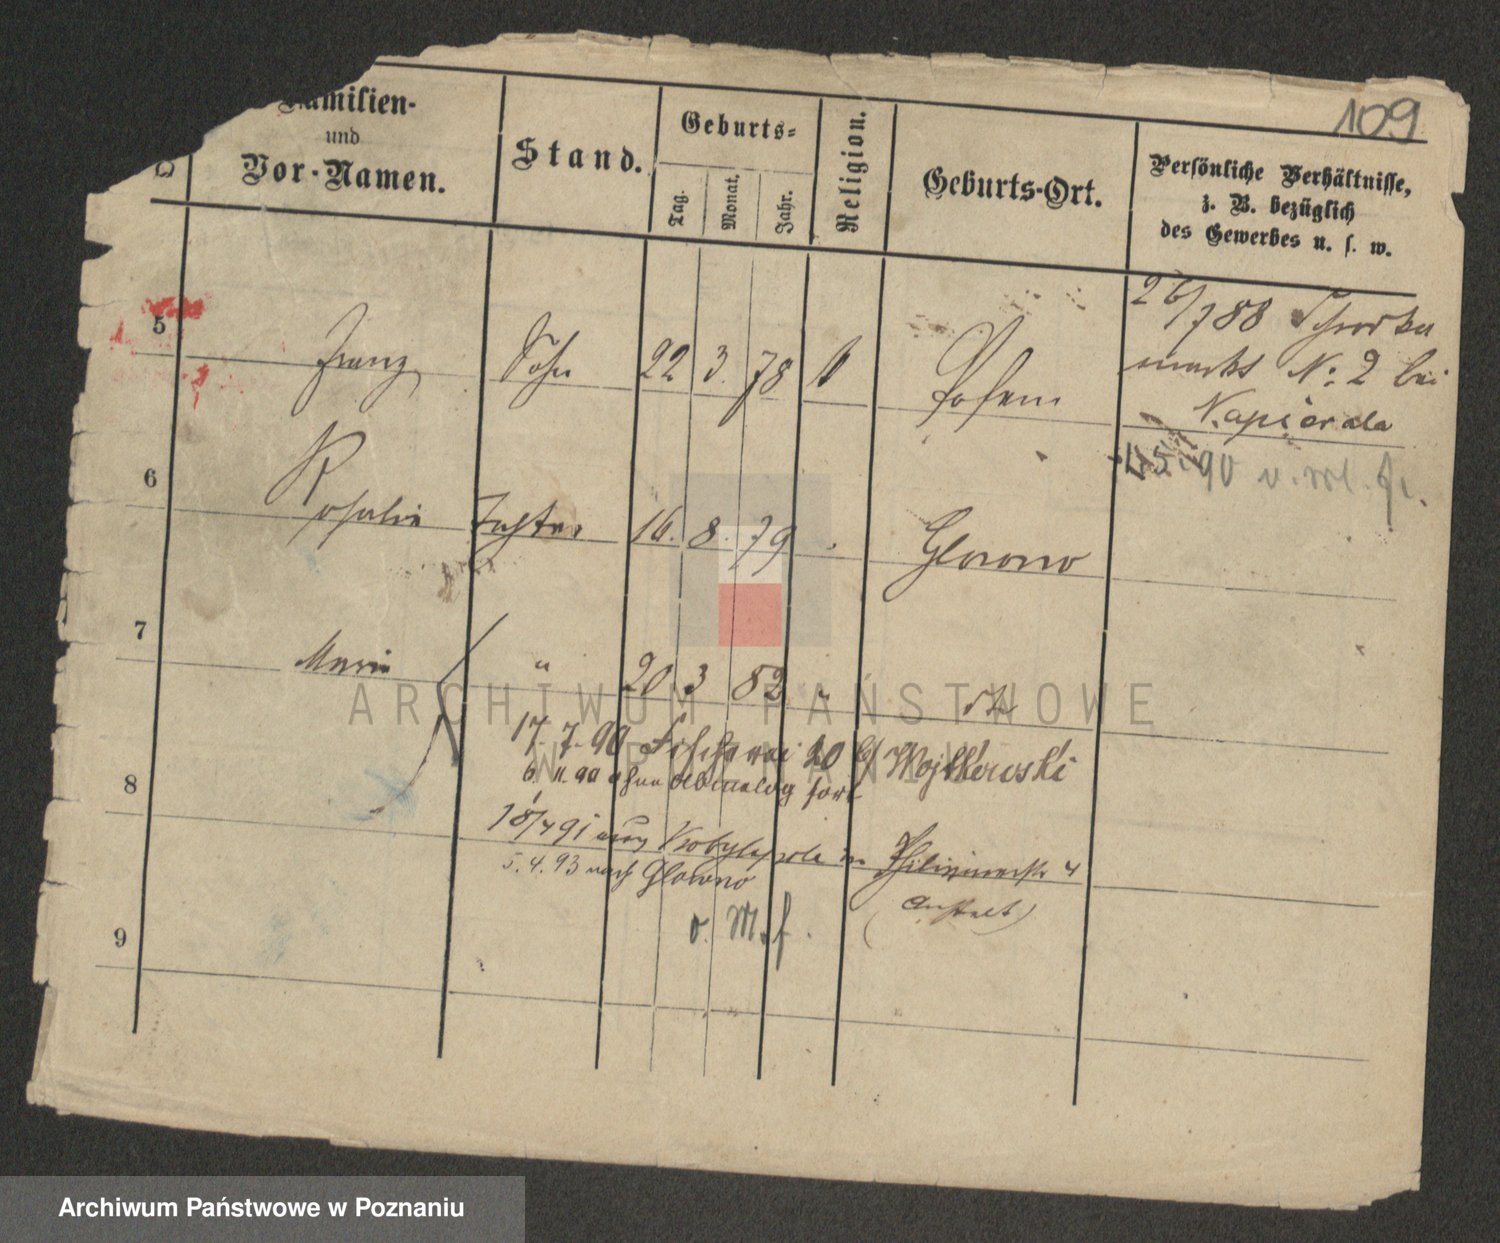 109
Familien-
und
Vor-Namen.
Stand.
Geburts-
Tag.
Monat.
Jahr.
Religion.
Geburts-Ort.
Persönliche Verhältnisse,
z. B. bezüglich
des Gewerbes u. s. w.
26/7 88
markt N: 2 bei
Napierala
5 Franz Sohn 22 3. 78 Posen
6 Rosalie Tochter 16. 8. 79 Glowno
5. 90 v. M. f.
7 Marie " 20 3 82
17. 7. 90 Fischerei 20 b/ Wojtkowski
6. 11. 90 ohne Abmeldg fort
8
18/4 91 aus Kobylepole in 4
5. 4. 93 nach Glowno
(Anstalt)
v. M. f.
9
ARCHIWUM PAŃSTWOWE
W POZNANIU
Archiwum Państwowe w Poznaniu